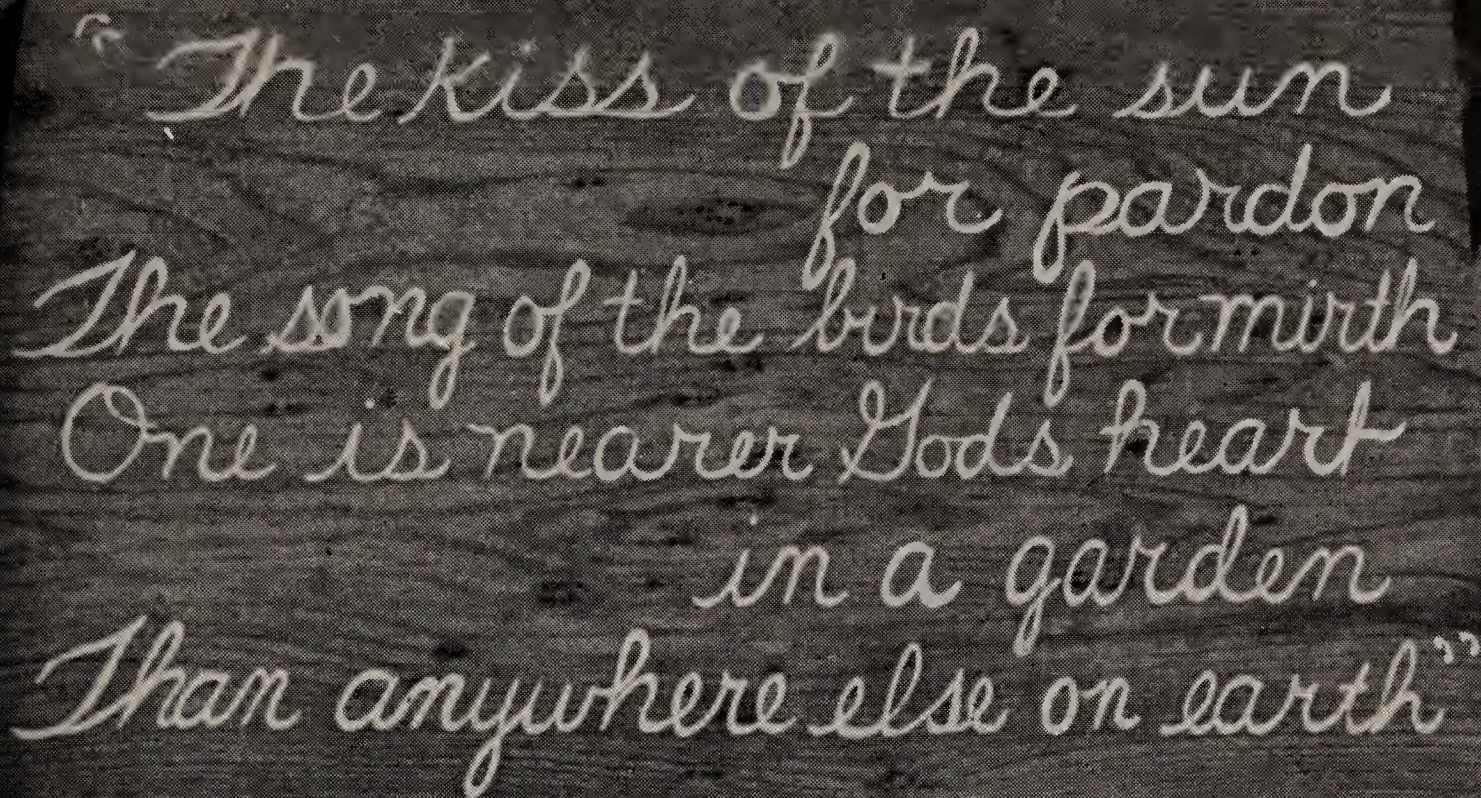 "The kiss of the sun
for pardon
The song of the birds for mirth
One is nearer Gods heart
in a garden
Than anywhere else on earth"